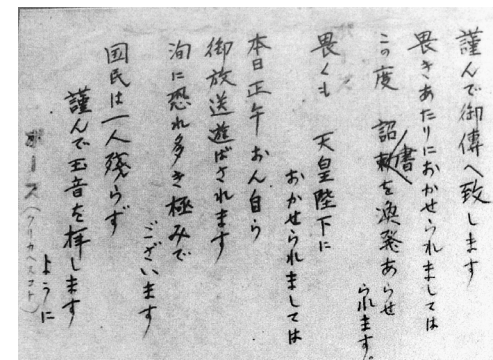 謹んで御傳へ致します
畏きあたりにおかせられましては
この度 詔書を渙発あらせ
られます。
畏くも 天皇陛下に
おかせられましては
本日正午おん自ら
御放送遊ばされます
洵に恐れ多き極みで
ございます
国民は一人残らず
謹んで玉音を拝します
ように
(クリカヘスコト)